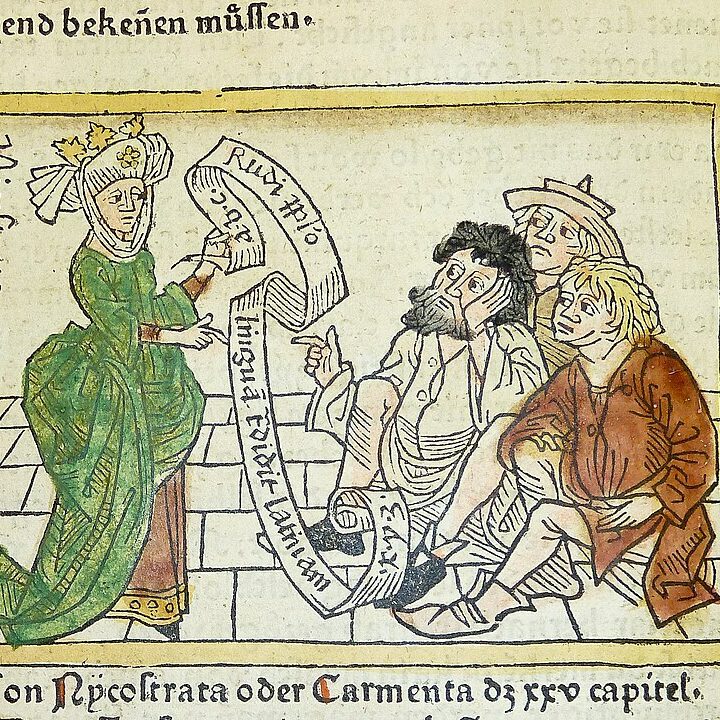 end bekeñen müssen.
a.b.c.
Rudi pplo
linguā edidit latinam
x.y.z.
on Nycostrata oder Carmenta dz xxv capitel.